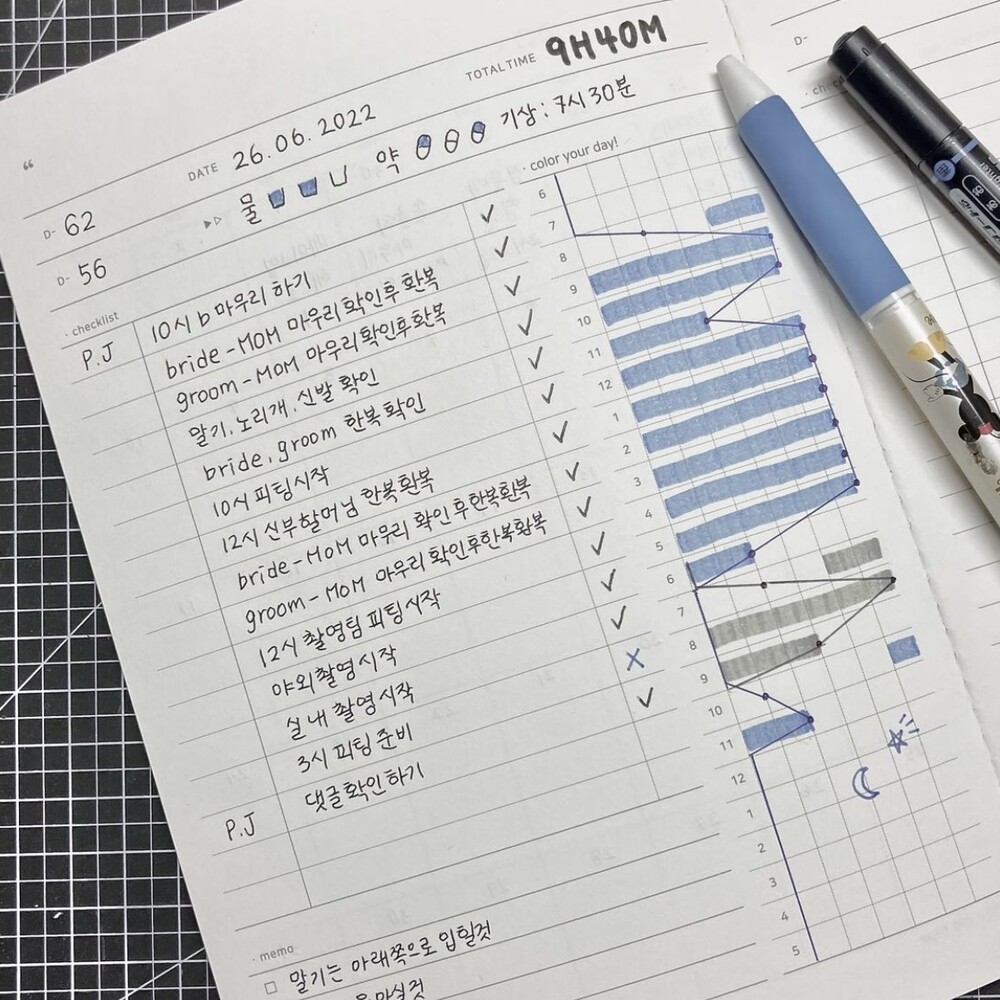 TOTAL TIME 9H40M
DATE 26.06.2022
물 약 기상: 7시30분
D- 62
D- 56
· checklist
· color your day!
P.J 10시 b 마우리 하기 ✓
bride-MOM 마우리 확인후 환복 ✓
groom-MOM 마우리확인후환복 ✓
말기.노리개.신발 확인 ✓
bride.groom 한복확인 ✓
10시 피팅시작 ✓
12시 신부할머님 한복환복 ✓
bride-MOM 마무리 확인후한복환복 ✓
groom-MOM 마우리 확인후한복환복 ✓
12시 촬영팀 피팅시작 ✓
야외촬영시작 ✓
실내 촬영시작 ✓
3시 피팅 준비 ×
P.J 댓글확인하기 ✓
6
7
8
9
10
11
12
2
3
4
5
6
7
8
9
10
11
12
1
2
3
4
5
· memo
□ 말기는 아래쪽으로 입힐것
D-